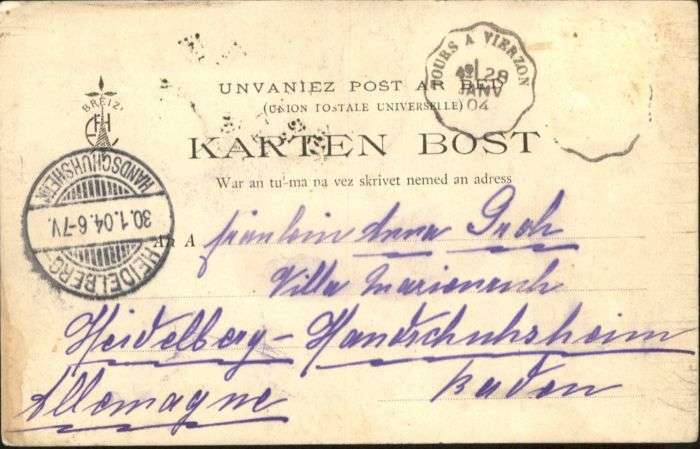 TOURS A VIERZON
28
JANV
04
UNVANIEZ POST AR BED
(UNION POSTALE UNIVERSELLE)
BREIZ
KARTEN BOST
War an tu-ma na vez skrivet nemed an adress
HEIDELBERG-
HANDSCHUHSHEIM
30.1.04.6-7V.
An A fräulein Anna Groh
Villa
Heidelberg-Handschuhsheim
Baden
Allemagne